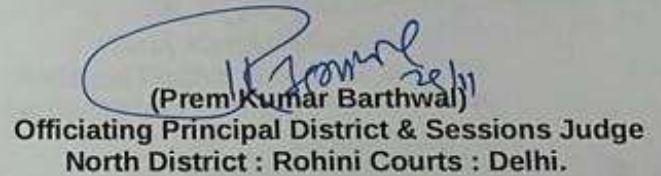 (Prem Kumar Barthwal)
Officiating Principal District & Sessions Judge
North District : Rohini Courts : Delhi.